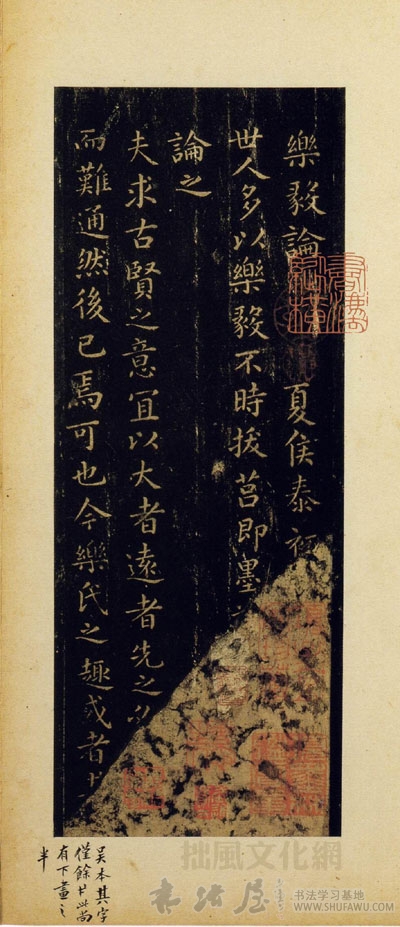 樂毅論 夏侯泰初
世人多以樂毅不時拔莒即墨
論之
夫求古賢之意宜以大者遠者先之必
而難通然後已焉可也今樂氏之趣或者
吴本其字
僅餘廿此尚
有下畫之
半
拙風文化網
书法学习基地
WWW.SHUFAWU.COM